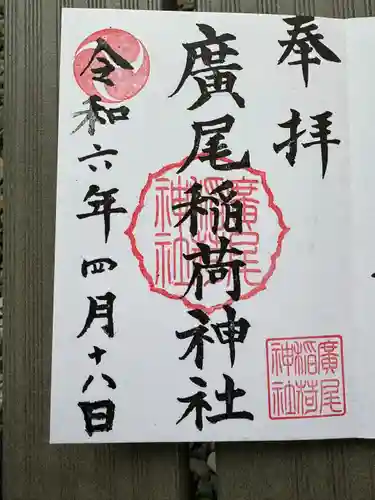 奉拝
廣尾稲荷神社
令和六年四月十八日
廣尾
稲荷
神社
廣尾
稲荷
神社